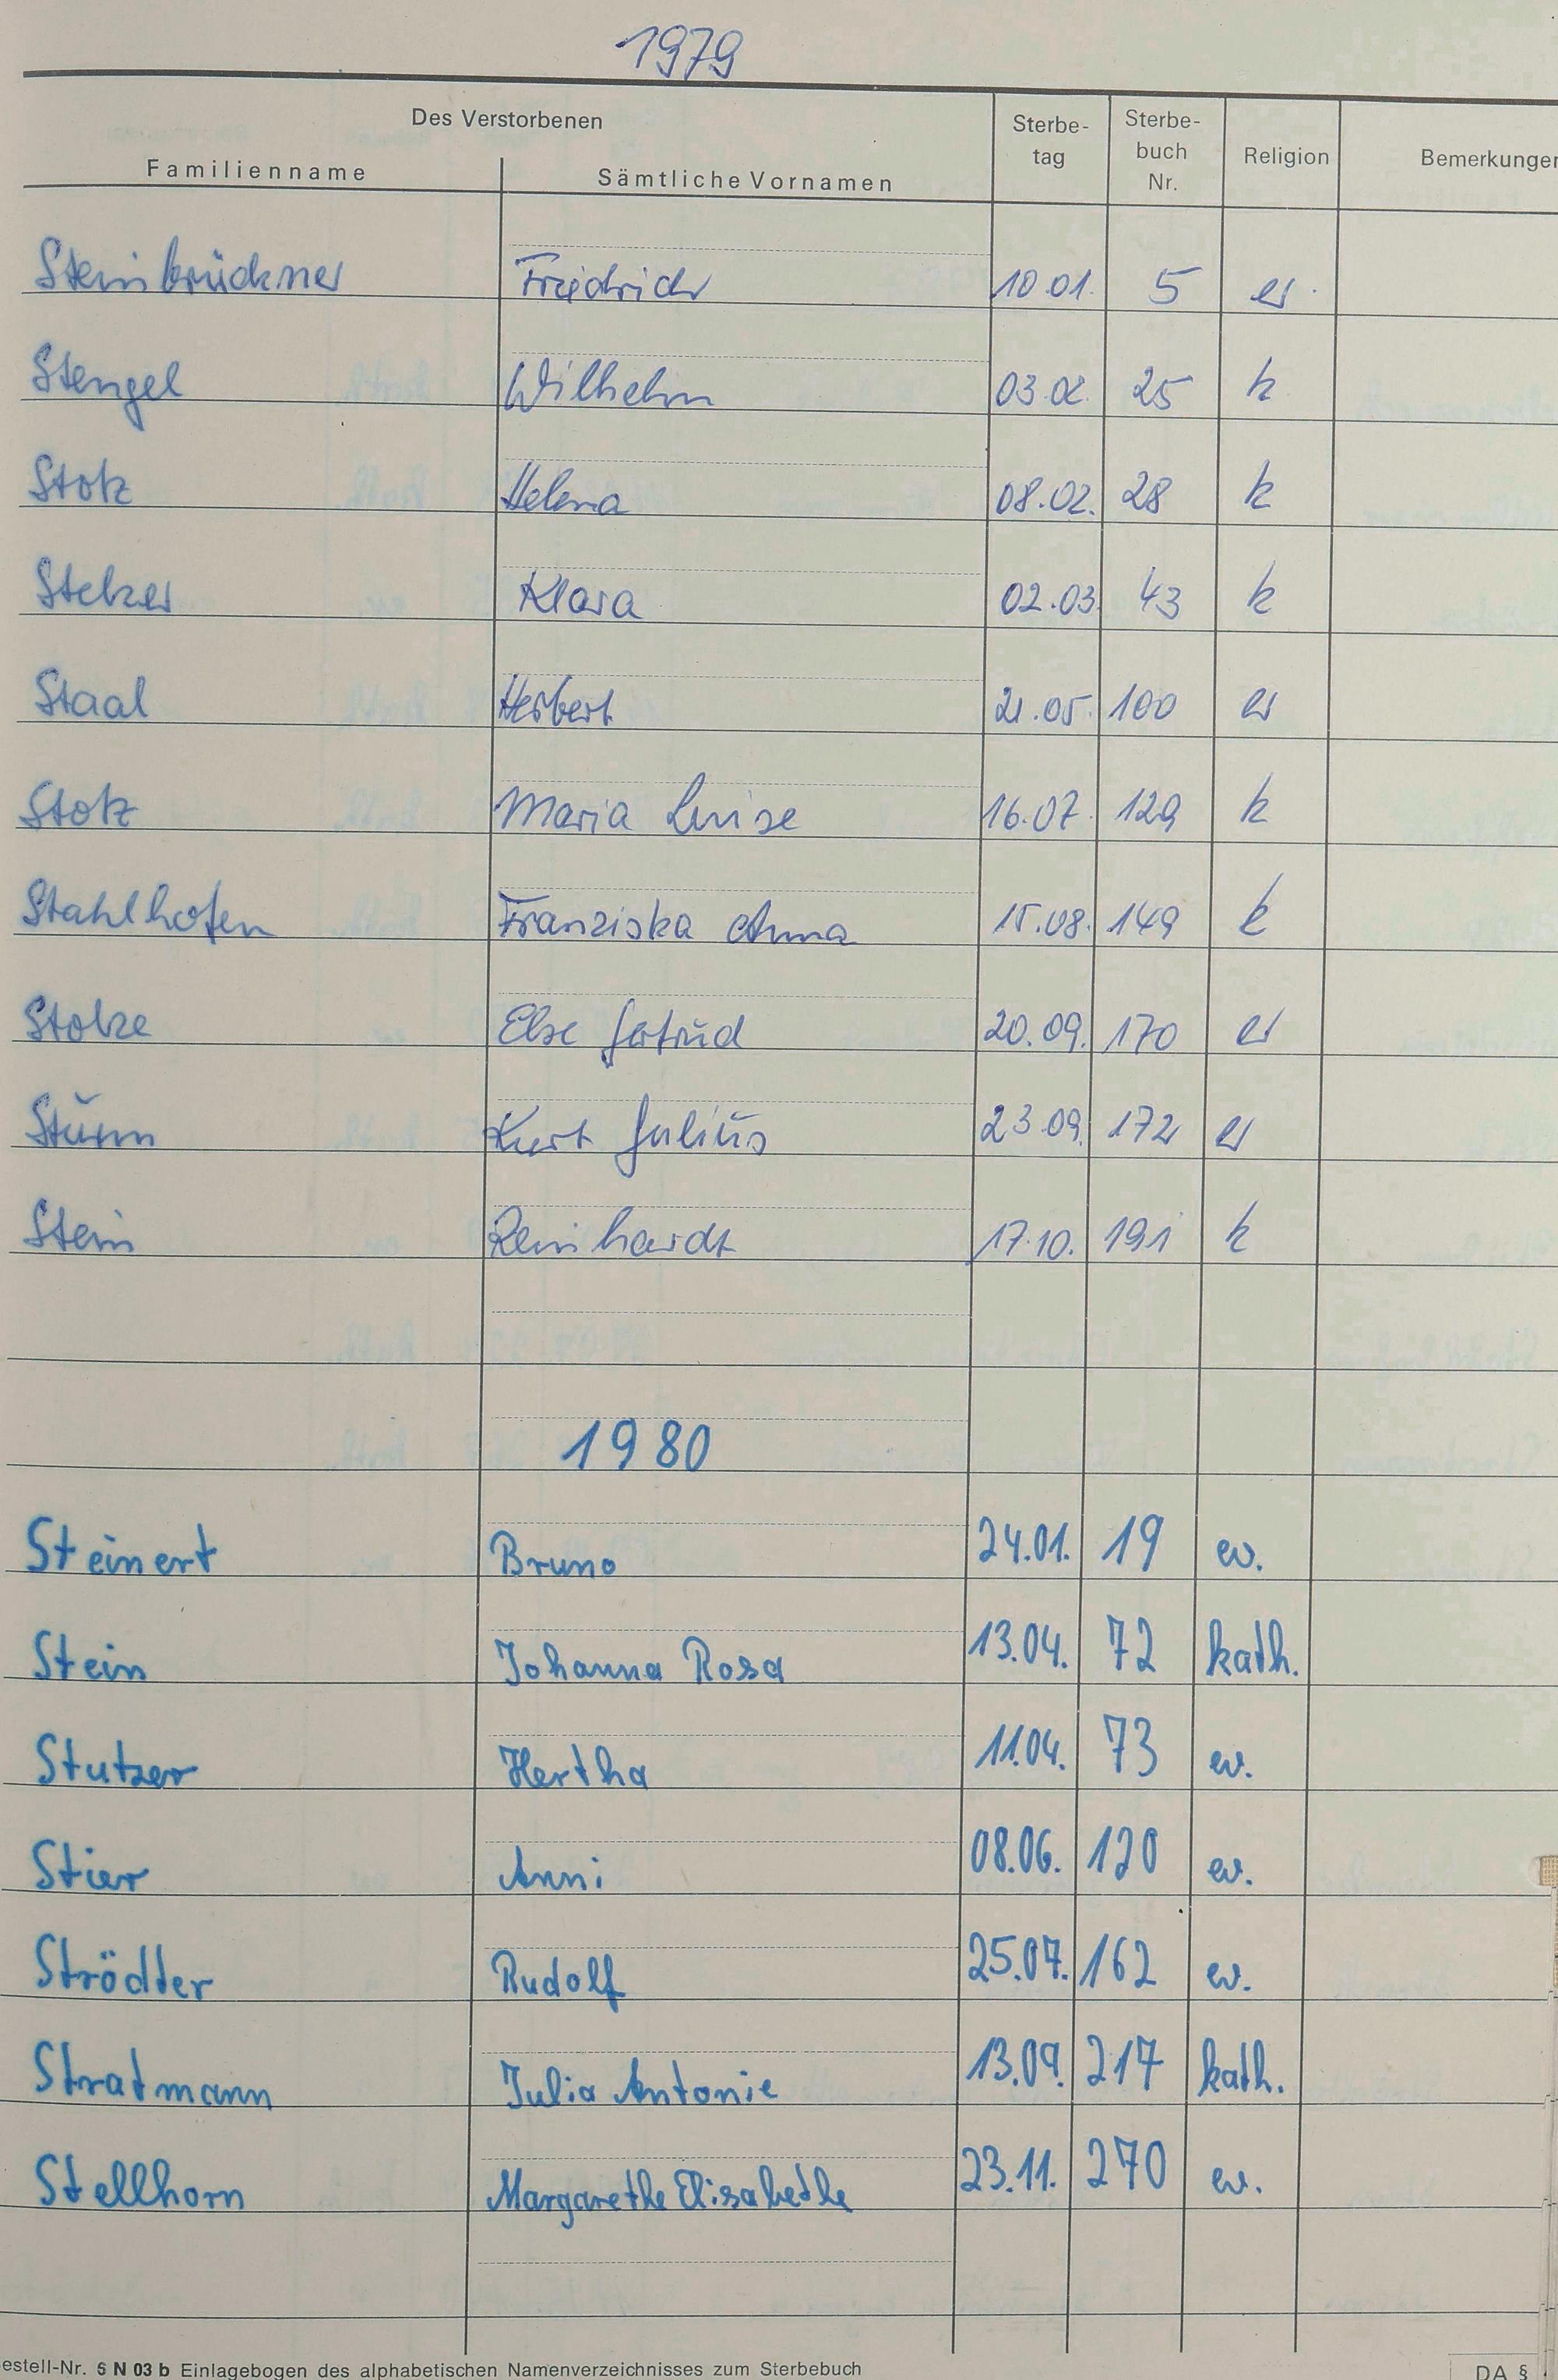 1979
Des Verstorbenen
Familienname Sämtliche Vornamen Sterbe-tag Sterbe-buch Nr. Religion Bemerkungen
Steinbrückner Friedrich 10.01. 5 ev.
Stengel Wilhelm 03.02. 25 k
Stotz Helena 08.02. 28 k
Stelzer Klara 02.03. 43 k
Staal Herbert 21.05. 100 ev
Stotz Maria Luise 16.07. 129 k
Stahlhofen Franziska Anna 15.08. 149 k
Stolze Else Gertrud 20.09. 170 ev
Sturm Kurt Julius 23.09. 172 ev
Stein Reinhardt 17.10. 191 k
1980
Steinert Bruno 24.01. 19 ev.
Stein Johanna Rosa 13.04. 72 kath.
Stutzer Hertha 11.04. 73 ev.
Stier Anni 08.06. 120 ev.
Strödter Rudolf 25.07. 162 ev.
Stratmann Julia Antonie 13.09. 217 kath.
Stellhorn Margarethe Elisabethe 23.11. 270 ev.
estell-Nr. 5 N 03 b Einlagebogen des alphabetischen Namenverzeichnisses zum Sterbebuch DA §